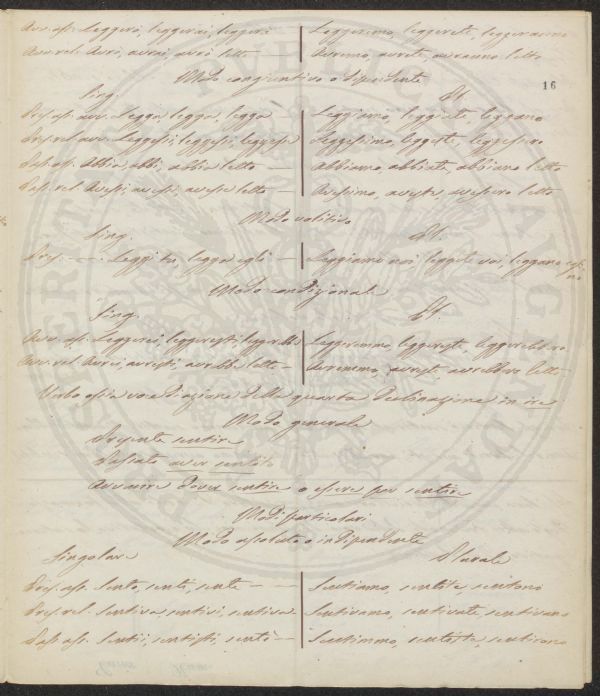 Avv. ass. Leggerò, leggerai, leggerà — Leggeremo, leggerete, leggeranno
Avv. rel. Avrò, avrai, avrà letto — Avremo, avrete, avranno letto
Modo congiuntivo o dipendente
16
Sing. Pl.
Pres. ass. avv. Legga, legga, legga Leggiamo, leggiate, leggano
Pres. rel. avv. Leggessi, leggessi, leggesse Leggessimo, leggeste, leggessero
Pass. ass. Abbia, abbi, abbia letto — Abbiamo, abbiate, abbiano letto
Pass. rel. Avessi, avessi, avesse letto — Avessimo, aveste, avessero letto
Modo volitivo
Sing. Pl.
Pres. — Leggi tu, legga egli — Leggiamo noi, leggete voi, leggano essi
Modo condizionale
Sing. Pl.
Avv. ass. Leggerei, leggeresti, leggerebbe Leggeremmo, leggereste, leggerebbero
Avv. rel. Avrei, avresti, avrebbe letto — Avremmo, avreste, avrebbero letto
Verbo ossia voce di azione della quarta declinazione in ire
Modo generale
Presente sentire
Passato aver sentito
Avvenire dover sentire o essere per sentire
Modi particolari
Modo assoluto o indipendente
Singolare Plurale
Pres. ass. Sento, senti, sente — Sentiamo, sentite, sentono
Pres. rel. Sentiva, sentivi, sentiva Sentivamo, sentivate, sentivano
Pass. ass. Sentii, sentisti, sentì — Sentimmo, sentiste, sentirono